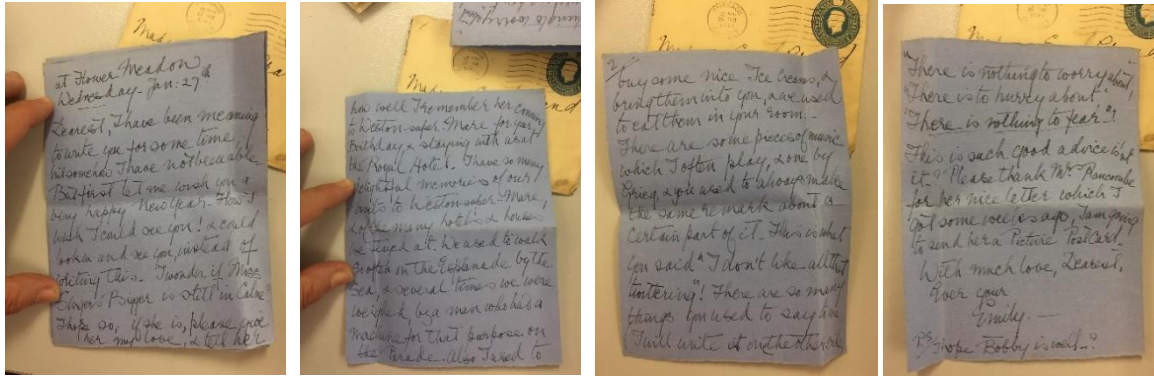 at Flower Meadow,
Wednesday Jan: 27th
Dearest, I have been meaning
to write you for some time
but somehow I have not been able
But first let me wish you a
very happy New Year. How I
wish I could see you! & could
look in and see you, instead of
writing this. I wonder if Miss
is still in Calne?
I hope so, if she is, please give
her my love, & tell her
how well I remember her coming
to Weston-super-Mare for your
Birthday, & staying with us at
the Royal Hotel. I have so many
delightful memories of our
visits to Weston-super-Mare,
& of the many hotels & houses
we stayed at. We used to walk
on the Esplanade by the
sea, & several times we were
weighed, by a man who had a
machine for that purpose on
the Parade. Also I used to
2
buy some nice Ice Creams, &
bring them into you, & we used
to eat them in your room.—
There are some pieces of music
which I often play, & one by
Grieg, & you used to always make
the same remark about a
certain part of it. This is what
you said "I don't like all that
"! There are so many
things you used to say
I will write it on the other side
"There is nothing to worry about,
"There is to hurry about"
"There is nothing to fear"!
This is such good advice isn't
it? Please thank Mrs
for her nice letter which I
got some weeks ago, I am going
to send her a Picture PostCard.
With much love, Dearest,
Ever your
Emily.—
P.S. I hope Bobby is well—?